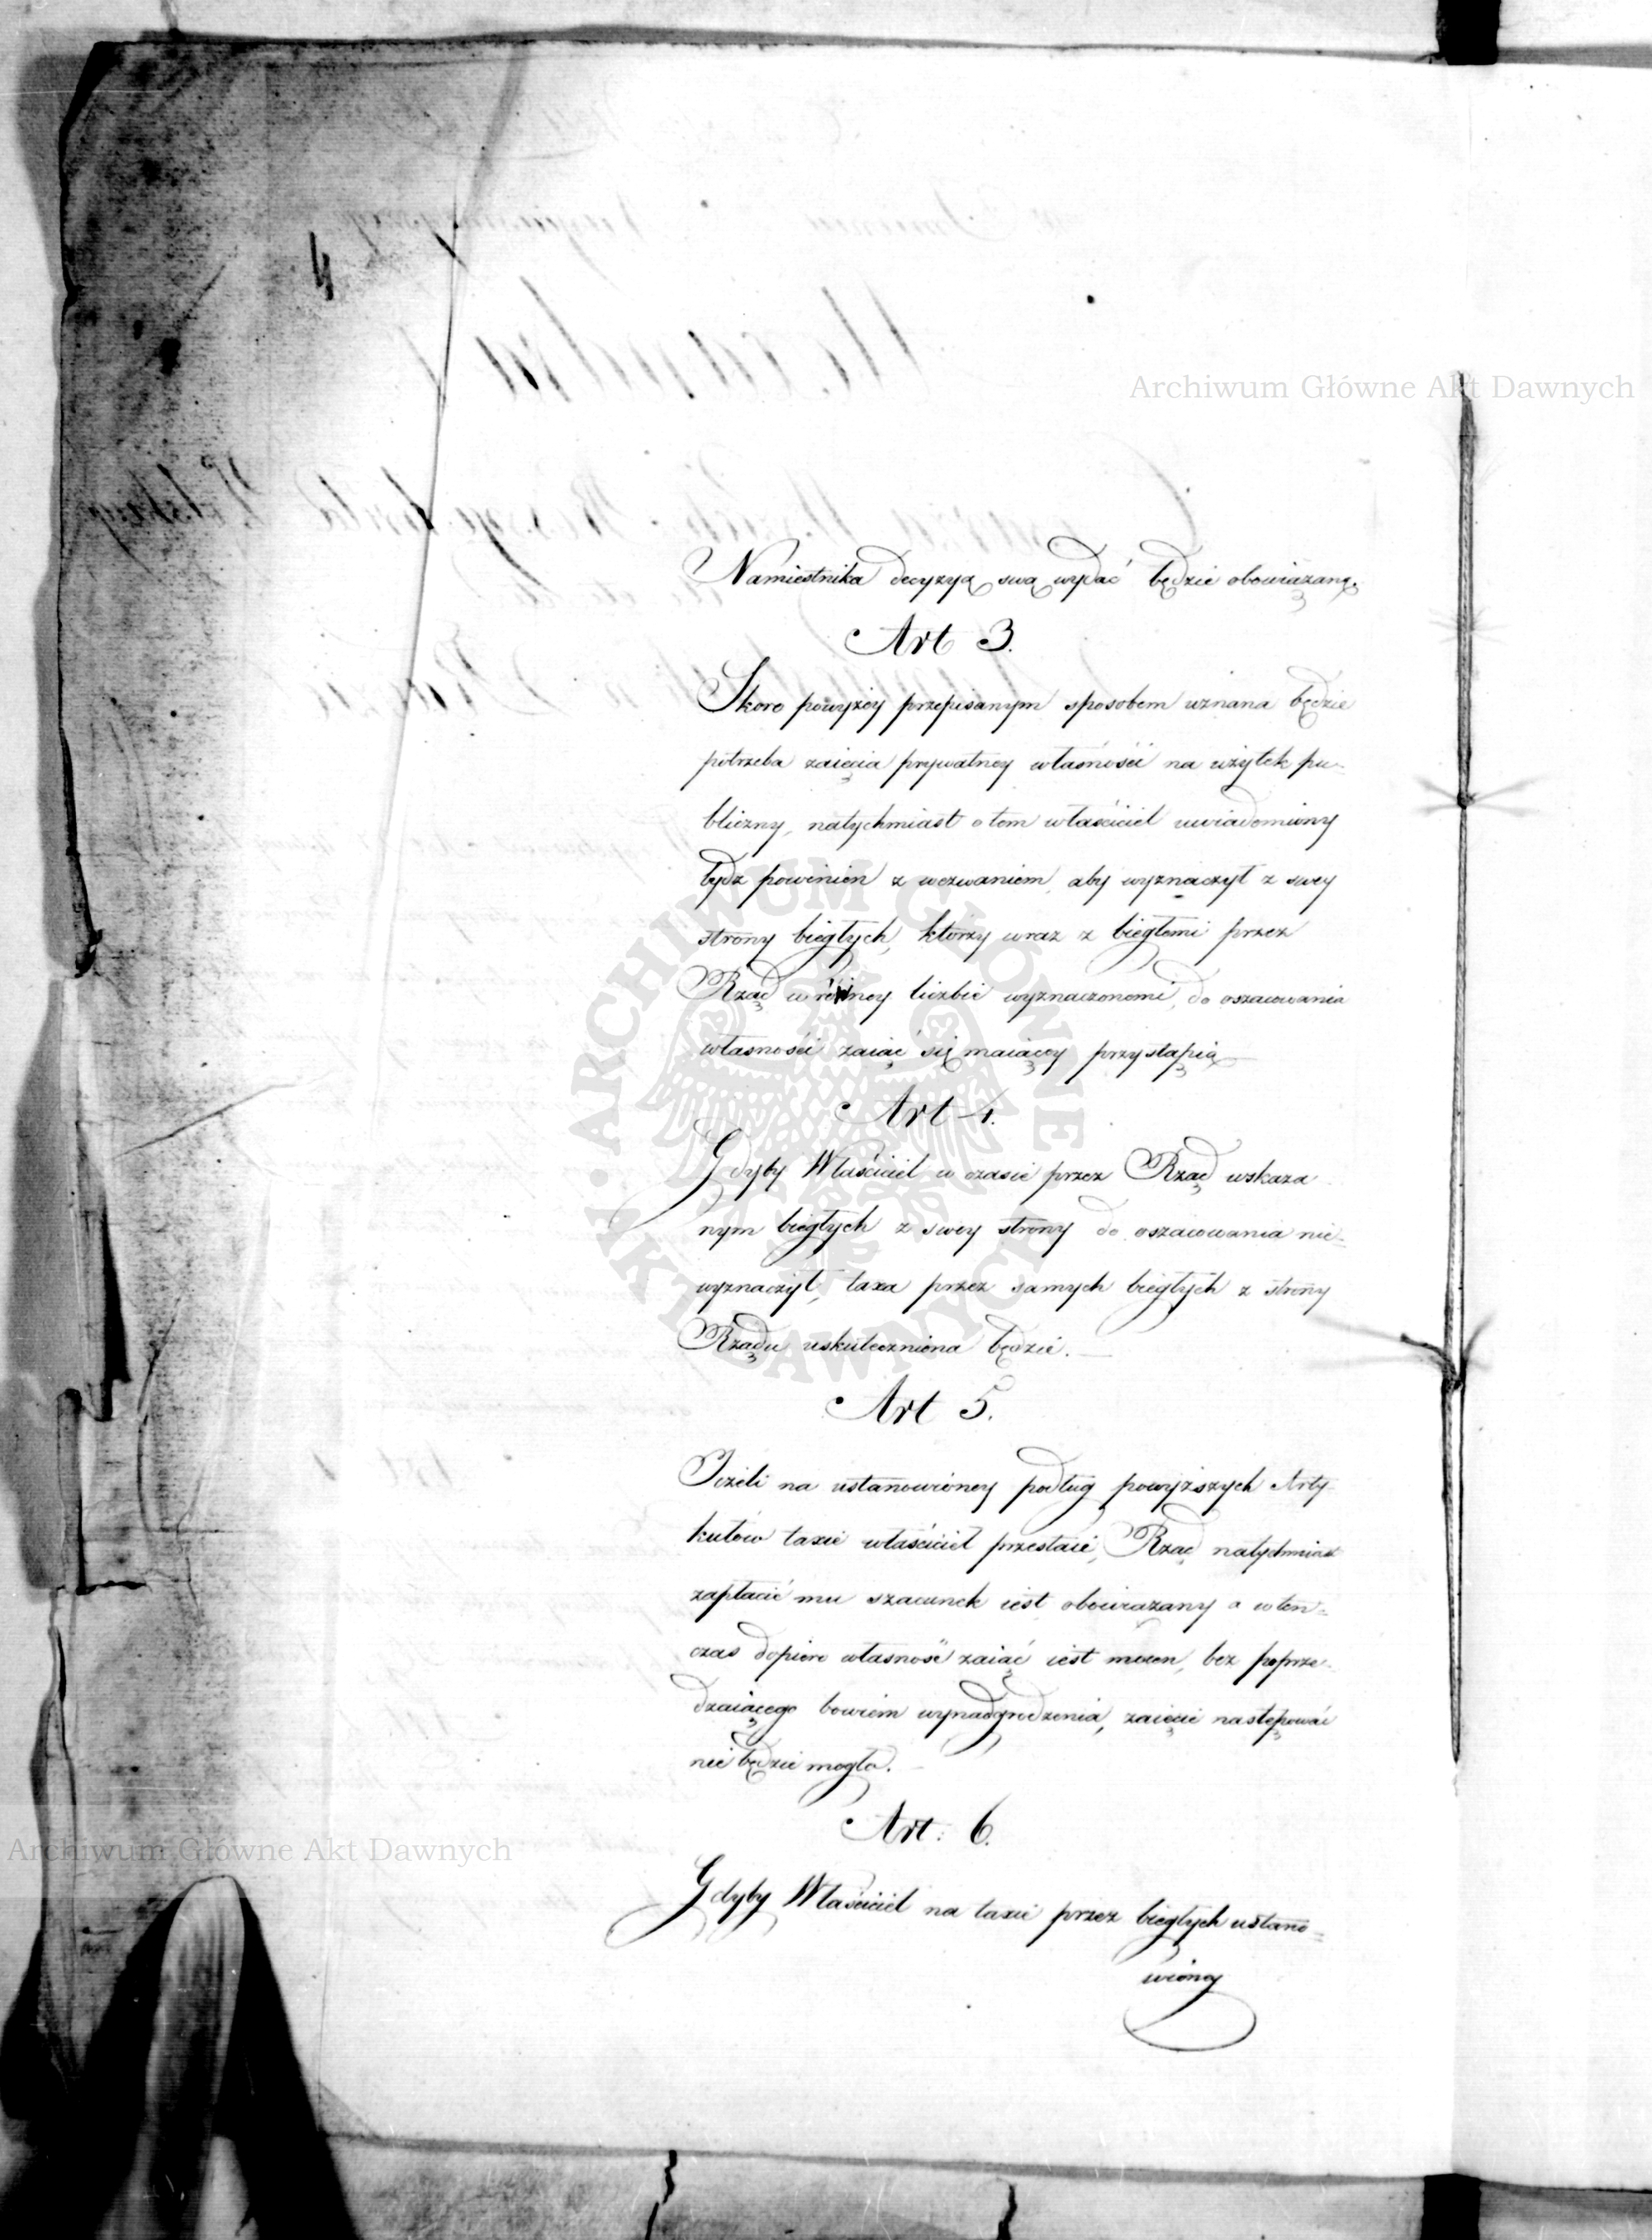 Archiwum Główne Akt Dawnych
Namiestnika decyzyą swą wydać będzie obowiązaną.
Art 3.
Skoro powyżey przepisanym sposobem uznana będzie
potrzeba zaięcia prywatney własności na użytek pu-
bliczny, natychmiast o tem właściciel uwiadomiony
bydz powinien z wezwaniem, aby wyznaczył z swey
strony biegłych, którzy wraz z biegłemi przez
Rząd w równey liczbie wyznaczonemi, do oszacowania
własności zaiąć się maiącey przystąpią
Art 4.
Gdyby Właściciel w czasie przez Rząd wskaza
nym biegłych z swey strony do oszacowania nie-
wyznaczył, taxa przez samych biegłych z strony
Rządu uskuteczniona będzie.
Art 5.
Jeżeli na ustanowioney podług powyższych Arty-
kułów taxie właściciel przestaie, Rząd natychmiast
zapłacić mu szacunek iest obowiązany a wten-
czas dopiero własność zaiąć iest mocen, bez poprze-
dzaiącego bowiem wynadgrodzenia, zaięcie następować
nie będzie mogło.
Art: 6.
Gdyby Właściciel na taxie przez biegłych ustano-
wioney
Archiwum Główne Akt Dawnych
ARCHIWUM GŁÓWNE AKT DAWNYCH